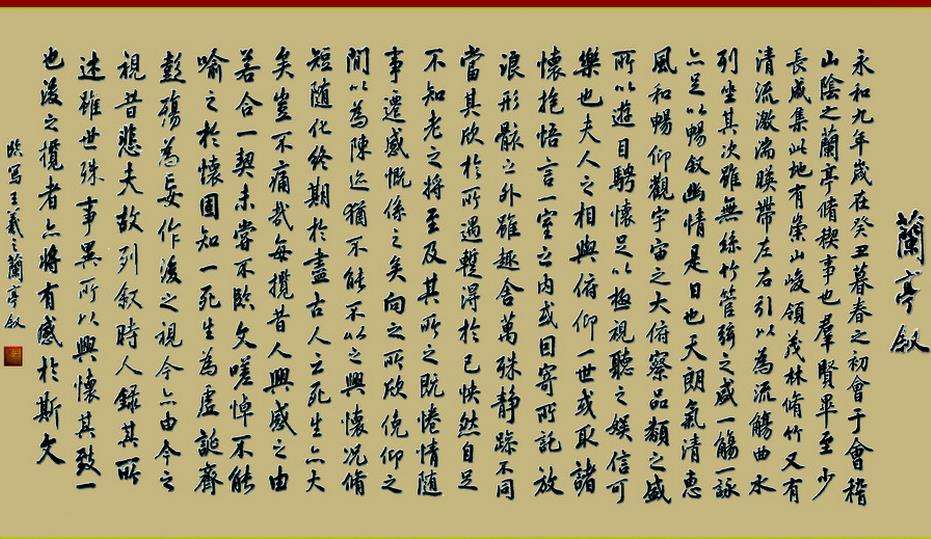 蘭亭叙
永和九年歲在癸丑暮春之初會于會稽
山陰之蘭亭脩禊事也羣賢畢至少
長咸集此地有崇山峻領茂林脩竹又有
清流激湍暎帶左右引以為流觴曲水
列坐其次雖無絲竹管弦之盛一觴一詠
亦足以暢叙幽情是日也天朗氣清惠
風和暢仰觀宇宙之大俯察品類之盛
所以遊目騁懷足以極視聽之娛信可
樂也夫人之相與俯仰一世或取諸
懷抱悟言一室之内或因寄所託放
浪形骸之外雖趣舍萬殊静躁不同
當其欣於所遇蹔得於己怏然自足
不知老之將至及其所之既惓情隨
事遷感慨係之矣向之所欣俛仰之
間以為陳迹猶不能不以之興懷況脩
短随化終期於盡古人云死生亦大
矣豈不痛哉每攬昔人興感之由
若合一契未嘗不臨文嗟悼不能
喻之於懷固知一死生為虛誕齊
彭殤為妄作後之視今亦由今之
視昔悲夫故列叙時人錄其所
述雖世殊事異所以興懷其致一
也後之攬者亦將有感於斯文
臨写王羲之蘭亭叙